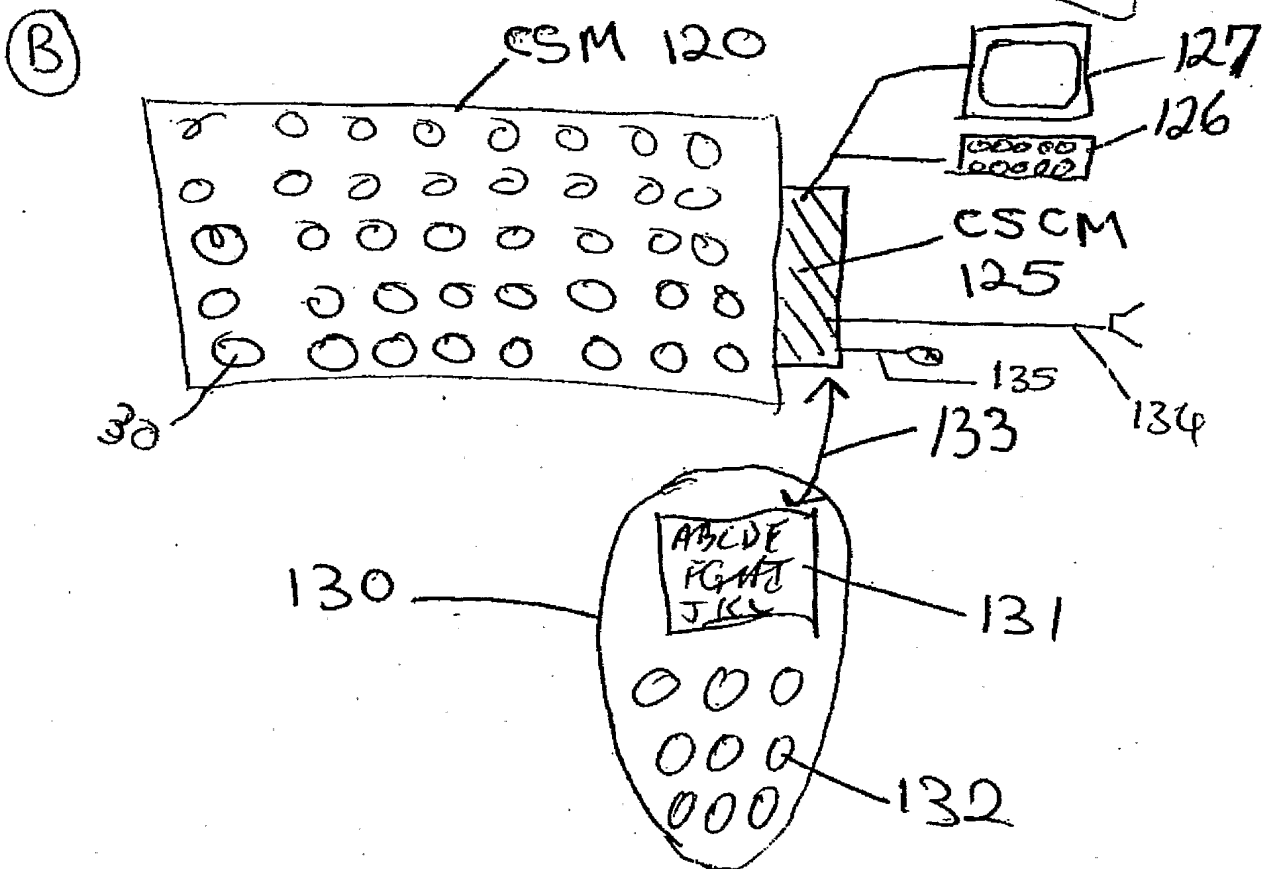 B
CSM 120
127
126
CSCM
125
135
134
30
133
ABCDE
JKL
130
131
132